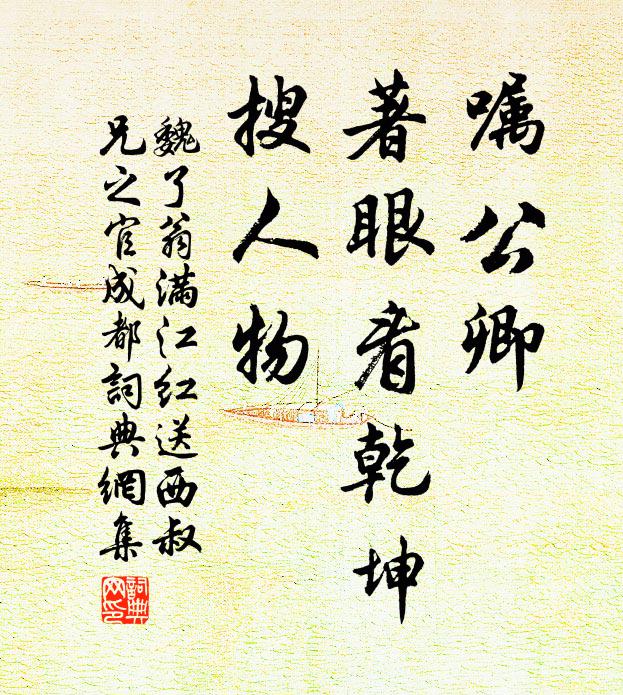 嘱公卿
著眼看乾坤
搜人物
魏了翁满江红送西叔
兄之官成都詞典網集
詞典网印